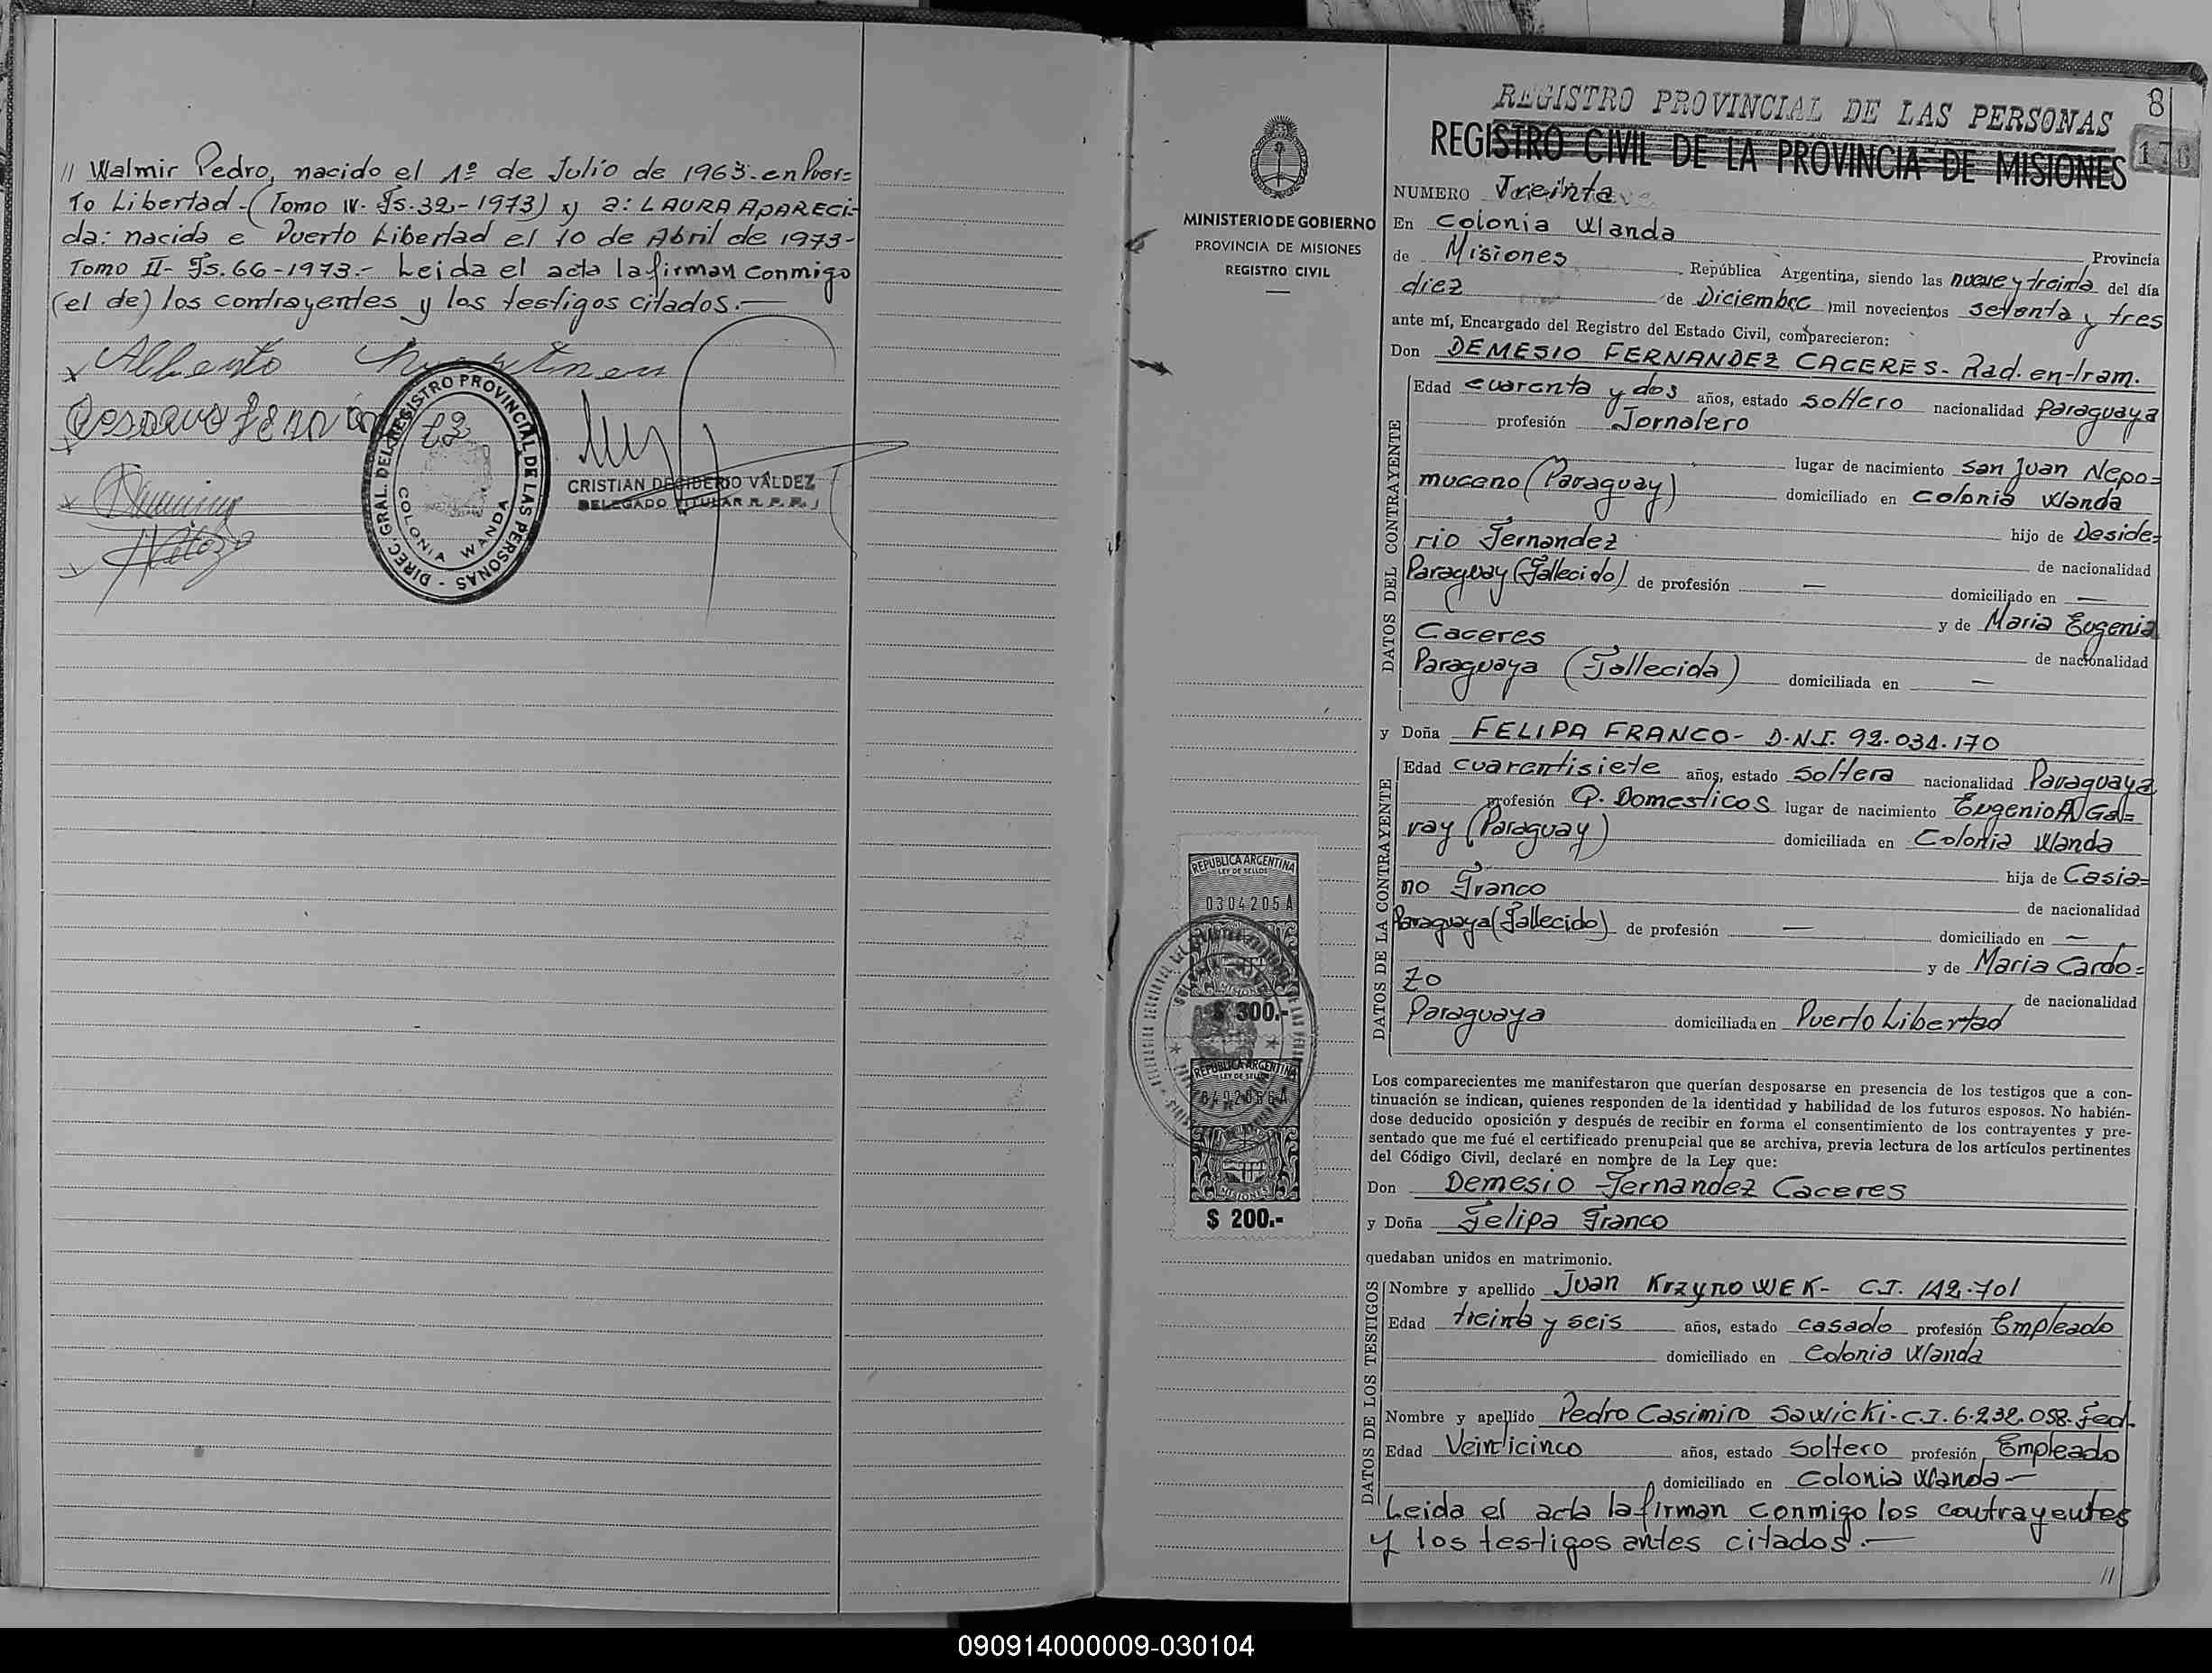 // Walmir Pedro, nacido el 1º de Julio de 1963-en Puer=
to Libertad-(Tomo IV. Fs.32-1973) y a: LAURA APARECI-
da: nacida e Puerto Libertad el 10 de Abril de 1973-
Tomo II- Fs. 66-1973.- Leida el acta la firman conmigo
(el de) los contrayentes y los testigos citados.-
Alberto
DIREC. GRAL. DEL REGISTRO PROVINCIAL DE LAS PERSONAS -
COLONIA WANDA
CRISTIAN DECIDERIO VALDEZ
DELEGADO TITULAR R. P. P.
8
REGISTRO PROVINCIAL DE LAS PERSONAS
REGISTRO CIVIL DE LA PROVINCIA DE MISIONES
176
MINISTERIO DE GOBIERNO
PROVINCIA DE MISIONES
REGISTRO CIVIL
NUMERO Treinta
En Colonia Wanda Provincia
de Misiones República Argentina, siendo las nueve y treinta del día
diez de Diciembre mil novecientos setenta y tres
ante mí, Encargado del Registro del Estado Civil, comparecieron:
Don DEMESIO FERNANDEZ CACERES- Rad. en-tram.
DATOS DEL CONTRAYENTE
Edad cuarenta y dos años, estado soltero nacionalidad Paraguaya
profesión Jornalero
lugar de nacimiento San Juan Nepo=
muceno (Paraguay) domiciliado en colonia Wanda
hijo de Deside=
rio Fernandez de nacionalidad
Paraguay (Fallecido) de profesión — domiciliado en —
y de Maria Eugenia
Caceres de nacionalidad
Paraguaya (Fallecida) domiciliada en —
y Doña FELIPA FRANCO- D.N.I. 92.034.170
DATOS DE LA CONTRAYENTE
Edad cuarentisiete años, estado soltera nacionalidad Paraguaya
profesión Q. Domesticos lugar de nacimiento Eugenio A Ga=
ray (Paraguay) domiciliada en Colonia Wanda
hija de Casia=
no Franco de nacionalidad
Paraguaya (Fallecido) de profesión — domiciliado en —
y de Maria Cardo=
zo de nacionalidad
Paraguaya domiciliada en Puerto Libertad
REPUBLICA ARGENTINA
LEY DE SELLOS
0304205A
MISIONES
$ 300.-
REPUBLICA ARGENTINA
LEY DE SELLOS
MISIONES
$ 200.-
Los comparecientes me manifestaron que querían desposarse en presencia de los testigos que a con-
tinuación se indican, quienes responden de la identidad y habilidad de los futuros esposos. No habién-
dose deducido oposición y después de recibir en forma el consentimiento de los contrayentes y pre-
sentado que me fué el certificado prenupcial que se archiva, previa lectura de los artículos pertinentes
del Código Civil, declaré en nombre de la Ley que:
Don Demesio Fernandez Caceres
y Doña Felipa Franco
quedaban unidos en matrimonio.
DATOS DE LOS TESTIGOS
Nombre y apellido Juan KrzynoWEK- C.I. 142.701
Edad treinta y seis años, estado casado profesión Empleado
domiciliado en Colonia Wanda
Nombre y apellido Pedro Casimiro Sawicki-C.I. 6.232.058-Fed.
Edad Veinticinco años, estado soltero profesión Empleado
domiciliado en colonia Wanda—
Leida el acta la firman conmigo los contrayentes
y los testigos antes citados.—
//
090914000009-030104